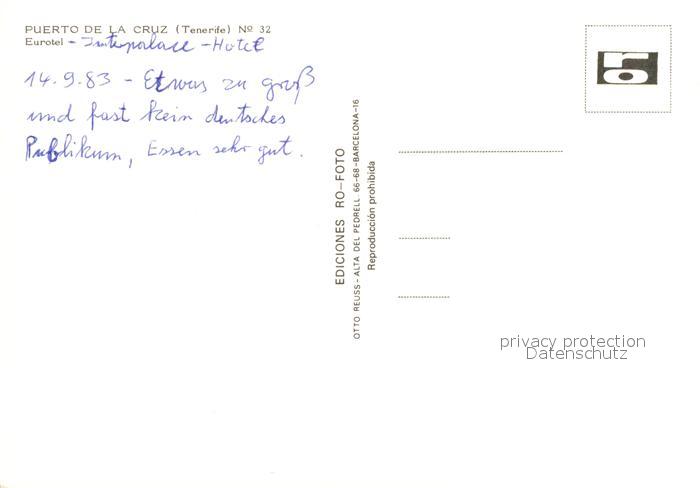 PUERTO DE LA CRUZ (Tenerife) Nº 32
Eurotel - Interpalace - Hotel
14.9.83 - Etwas zu groß
und fast kein deutsches
Publikum, Essen sehr gut.
EDICIONES RO-FOTO
OTTO REUSS - ALTA DEL PEDRELL. 66-68 - BARCELONA-16
Reproducción prohibida
ro
privacy protection
Datenschutz